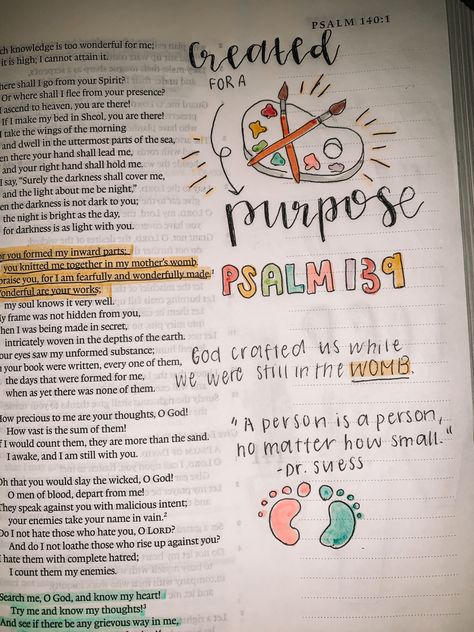 PSALM 140:1
ch knowledge is too wonderful for me;
it is high; I cannot attain it.
here shall I go from your Spirit?
Or where shall I flee from your presence?
I ascend to heaven, you are there!
If I make my bed in Sheol, you are there!
I take the wings of the morning
and dwell in the uttermost parts of the sea,
en there your hand shall lead me,
and your right hand shall hold me.
I say, "Surely the darkness shall cover me,
and the light about me be night,"
en the darkness is not dark to you;
the night is bright as the day,
for darkness is as light with you.
or you formed my inward parts;
you knitted me together in my mother's womb.
praise you, for I am fearfully and wonderfully made.
Wonderful are your works;
my soul knows it very well.
My frame was not hidden from you,
when I was being made in secret,
intricately woven in the depths of the earth.
our eyes saw my unformed substance;
n your book were written, every one of them,
the days that were formed for me,
when as yet there was none of them.
How precious to me are your thoughts, O God!
How vast is the sum of them!
f I would count them, they are more than the sand.
I awake, and I am still with you.
Oh that you would slay the wicked, O God!
O men of blood, depart from me!
They speak against you with malicious intent;
your enemies take your name in vain.²
Do I not hate those who hate you, O LORD?
And do I not loathe those who rise up against you?
I hate them with complete hatred;
I count them my enemies.
Search me, O God, and know my heart!
Try me and know my thoughts!³
And see if there be any grievous way in me,
created
FOR A
purpose
PSALM 139
GOD CRAFTED US WHILE
WE WERE STILL IN THE WOMB.
"A PERSON IS A PERSON,
NO MATTER HOW SMALL."
-DR. SUESS